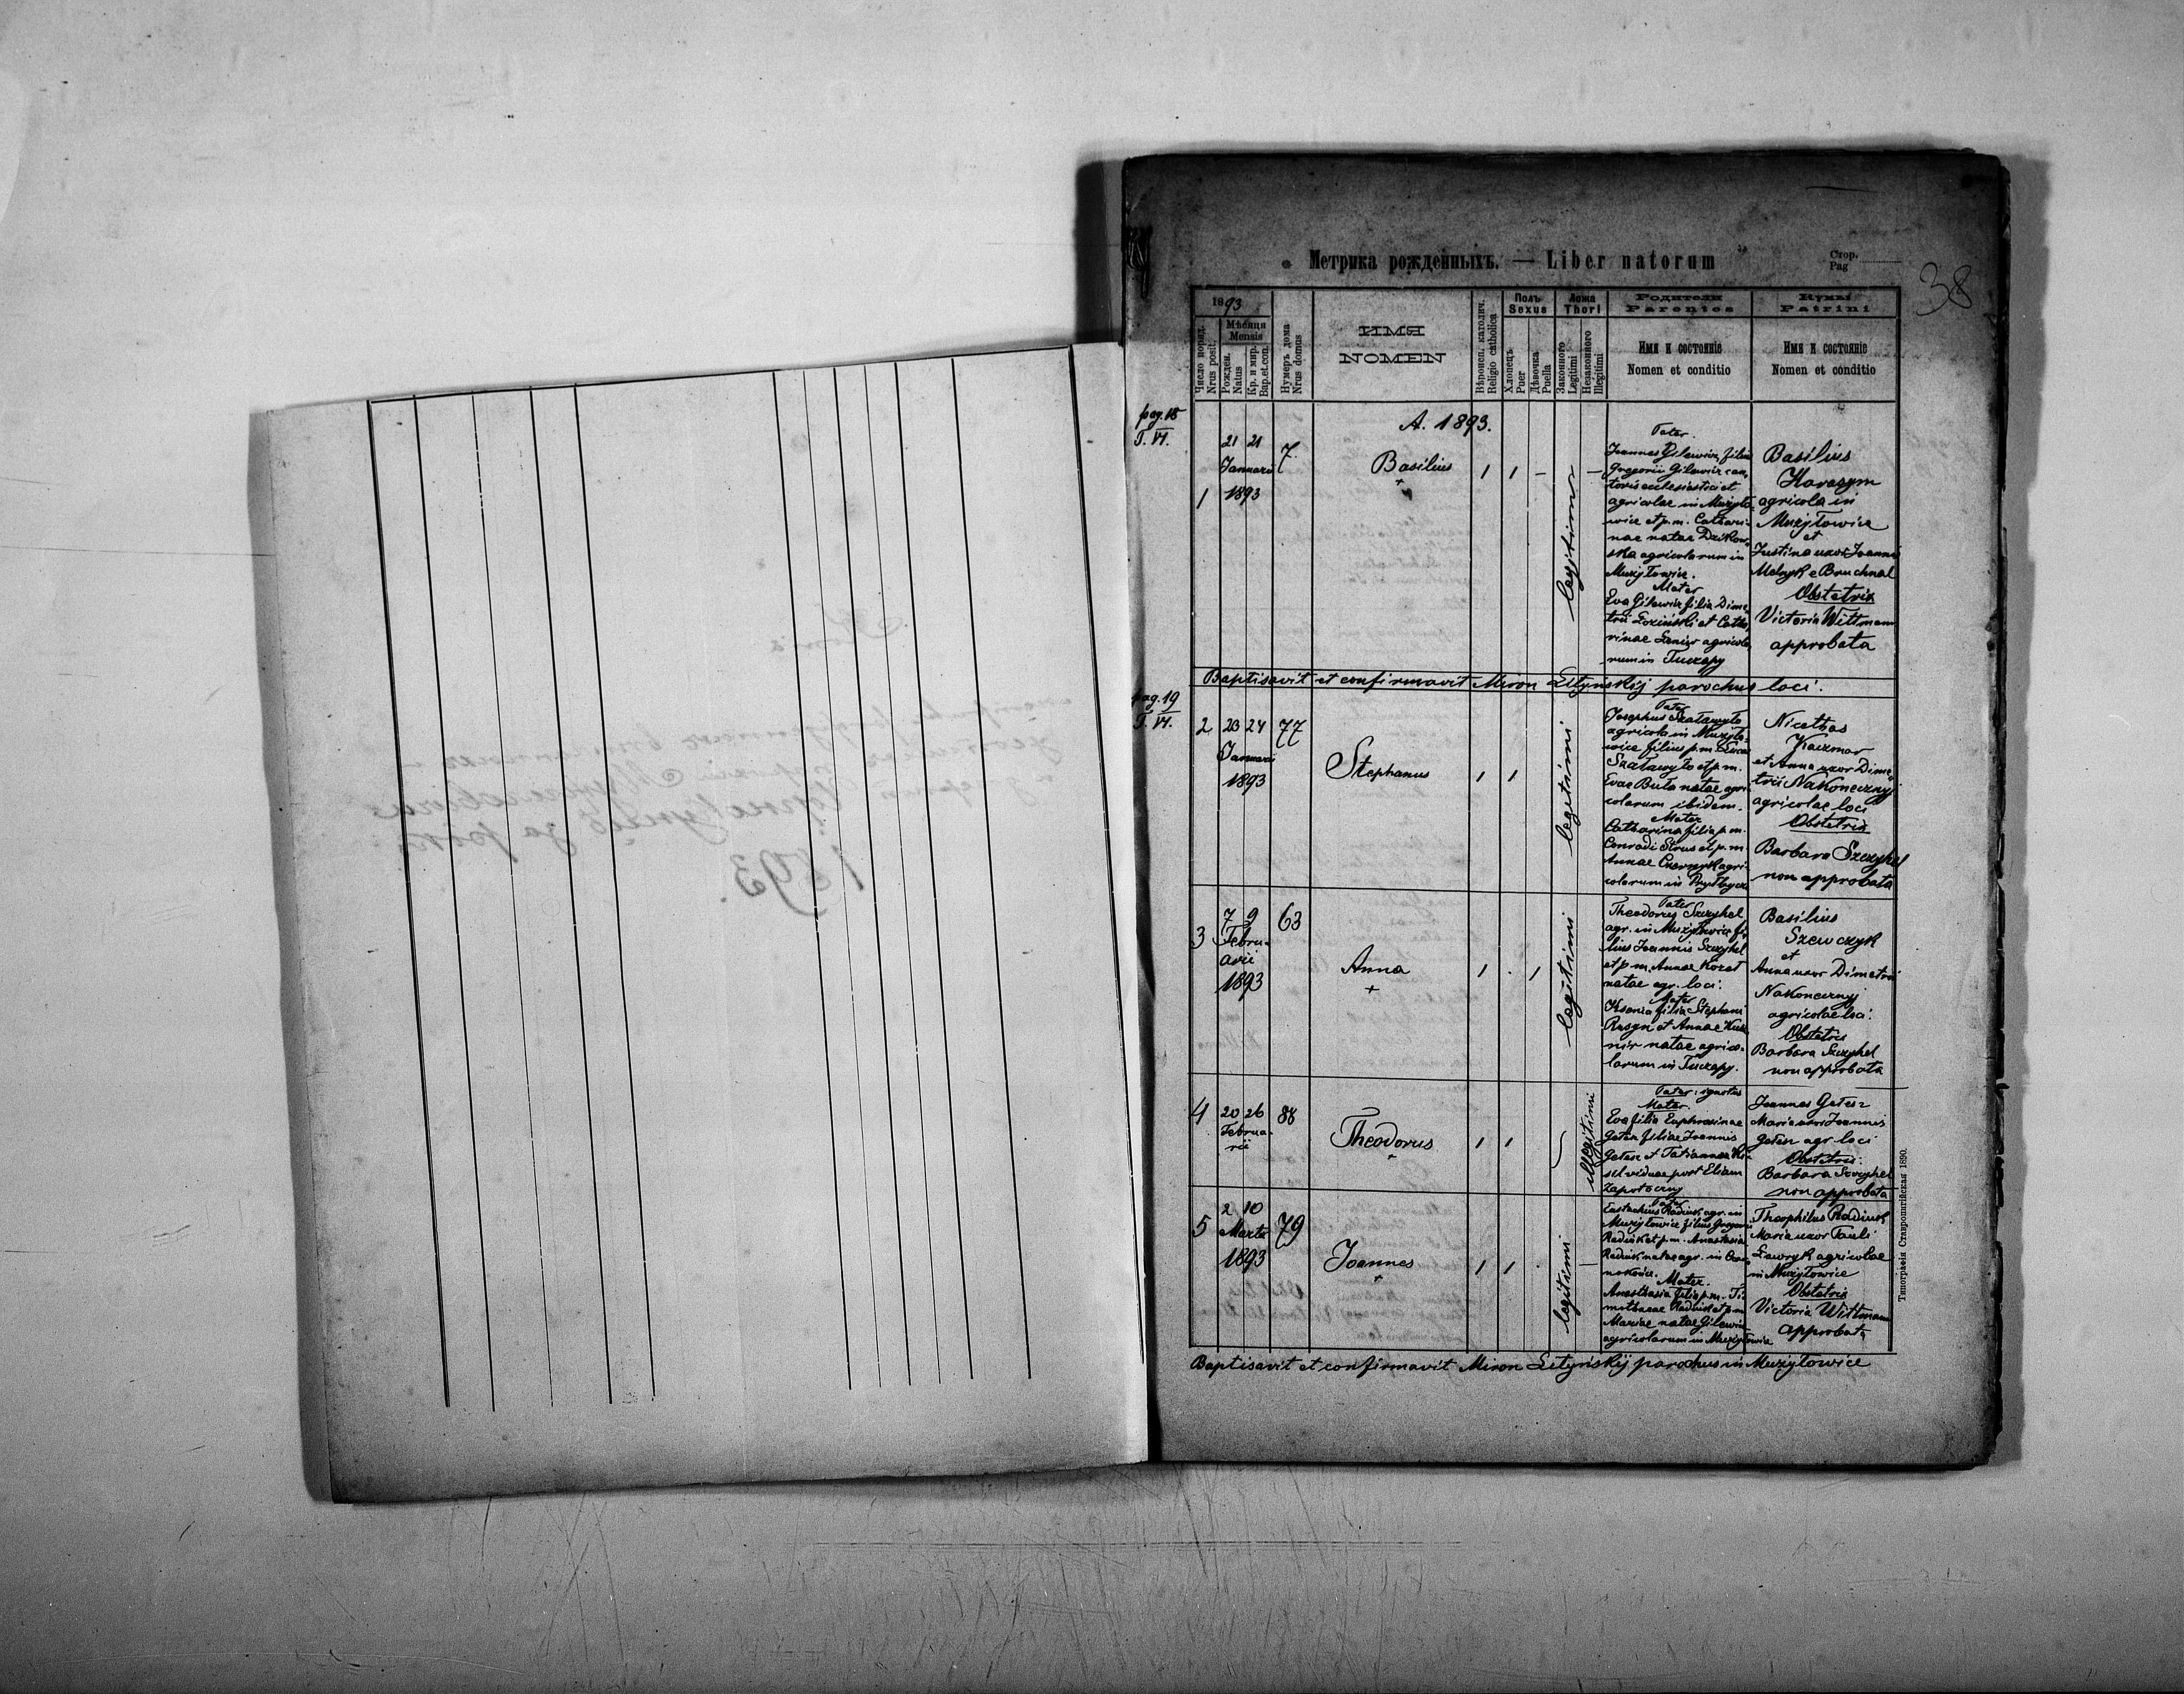 Метрика рожденныхъ. — Liber natorum
Стор.
Pag
38
1893
Число поряд.
Nrus posit.
Мѣсяця
Mensis
Рожден.
Natus
Кр. и мир.
Bap.et.con.
Нумеръ дома
Nrus domus
ИМЯ
NOMEN
Вѣроисп. католич.
Religio catholica
Полъ
Sexus
Хлопецъ
Puer
Дѣвочка
Puella
Ложа
Thori
Законного
Legitimi
Незаконного
Illegitimi
Родители
Parentes
Имя и состояніе
Nomen et conditio
Кумы
Patrini
Имя и состояніе
Nomen et conditio
pag. 18
T. VI.
A. 1893.
1
21 21
Januarii
1893
7
Basilius
+
1 1 –
legitimi
–
Pater.
Joannes Gilewicz, filius
Gregorii Gilewicz can-
toris ecclesiastici et
agricolae in Mużyło-
wice et p.m. Cathari-
nae natae Dzikow-
ska agricolarum in
Mużyłowice.
Mater
Eva Gilewicz filia Dime-
trii Łoziński et Catha-
rinae agricola-
rum in Tuczapy
Basilius
Harasym
agricola in
Mużyłowice
et
Justina uxor Joannis
Melnyk e Bruchnal
Obstetrix
Victoria Wittmann
approbata
Baptisavit et confirmavit Miron Lityńskij parochus loci.
pag. 19
T. VI.
2
23 24
Januarii
1893
77
Stephanus
1 1
legitimi
Pater
Josephus Szaławyło
agricola in Mużyło-
wice filius p.m. Lucae
Szaławyło et p.m.
Evae Buła natae agri-
colarum ibidem.
Mater
Catharina filia p.m.
Conradi Strus et p.m.
Annae agri-
colarum in
Nicethas
Kaczmar
et Anna uxor Dime-
trii Nakonecznyj
agricolae loci
Obstetrix
Barbara Szczyhel
non approbata
3
7 9
Febru-
arii
1893
63
Anna
+
1 . 1
legitimi
Pater
Theodorus Szczyhel
agr. in Mużyłowice fi-
lius Joannis Szczyhel
et p.m. Annae Kozeł
natae agr. loci.
Mater
Ksenia filia Stephani
et Annae Kusz-
nir natae agrico-
larum in Tuczapy.
Basilius
Szewczyk
et
Anna uxor Dimetrii
Nakonecznyj
agricolae loci.
Obstetrix
Barbara Szczyhel
non approbata
4
20 26
Februa-
rii
88
Theodorus
+
1 1
illegitimi
Pater: ignotus
Mater.
Eva filia Euphrosinae
Gełesz filiae Joannis
Gełesz et Tatiannae Ki-
sil viduae post Eliam
Zapotoczny
Joannes Gełesz
Maria uxor Joannis
Gełesz agr. loci
Obstetrix:
Barbara Szczyhel
non approbata
5
2 10
Martii
1893
79
Joannes
+
1 1 .
legitimi
–
Pater
Eustachius Radiuk, agr. in
Mużyłowice filius Gregorii
Radiuk et p.m. Anastasiae
Radiuk natae agr. in
Mater.
Anasthasia filia p.m. Ti-
motheae Radiuk et p.m.
Mariae natae Gilewicz
agricolarum in Mużyłowice
Theophilus Radiuk
Maria uxor Pauli
Ławryk agricolae
in Mużyłowice
Obstetrix
Victoria Wittmann
approbata
Baptisavit et confirmavit Miron Lityńskij parochus in Mużyłowice
Типографія Ставропигійская 1890.
1893.